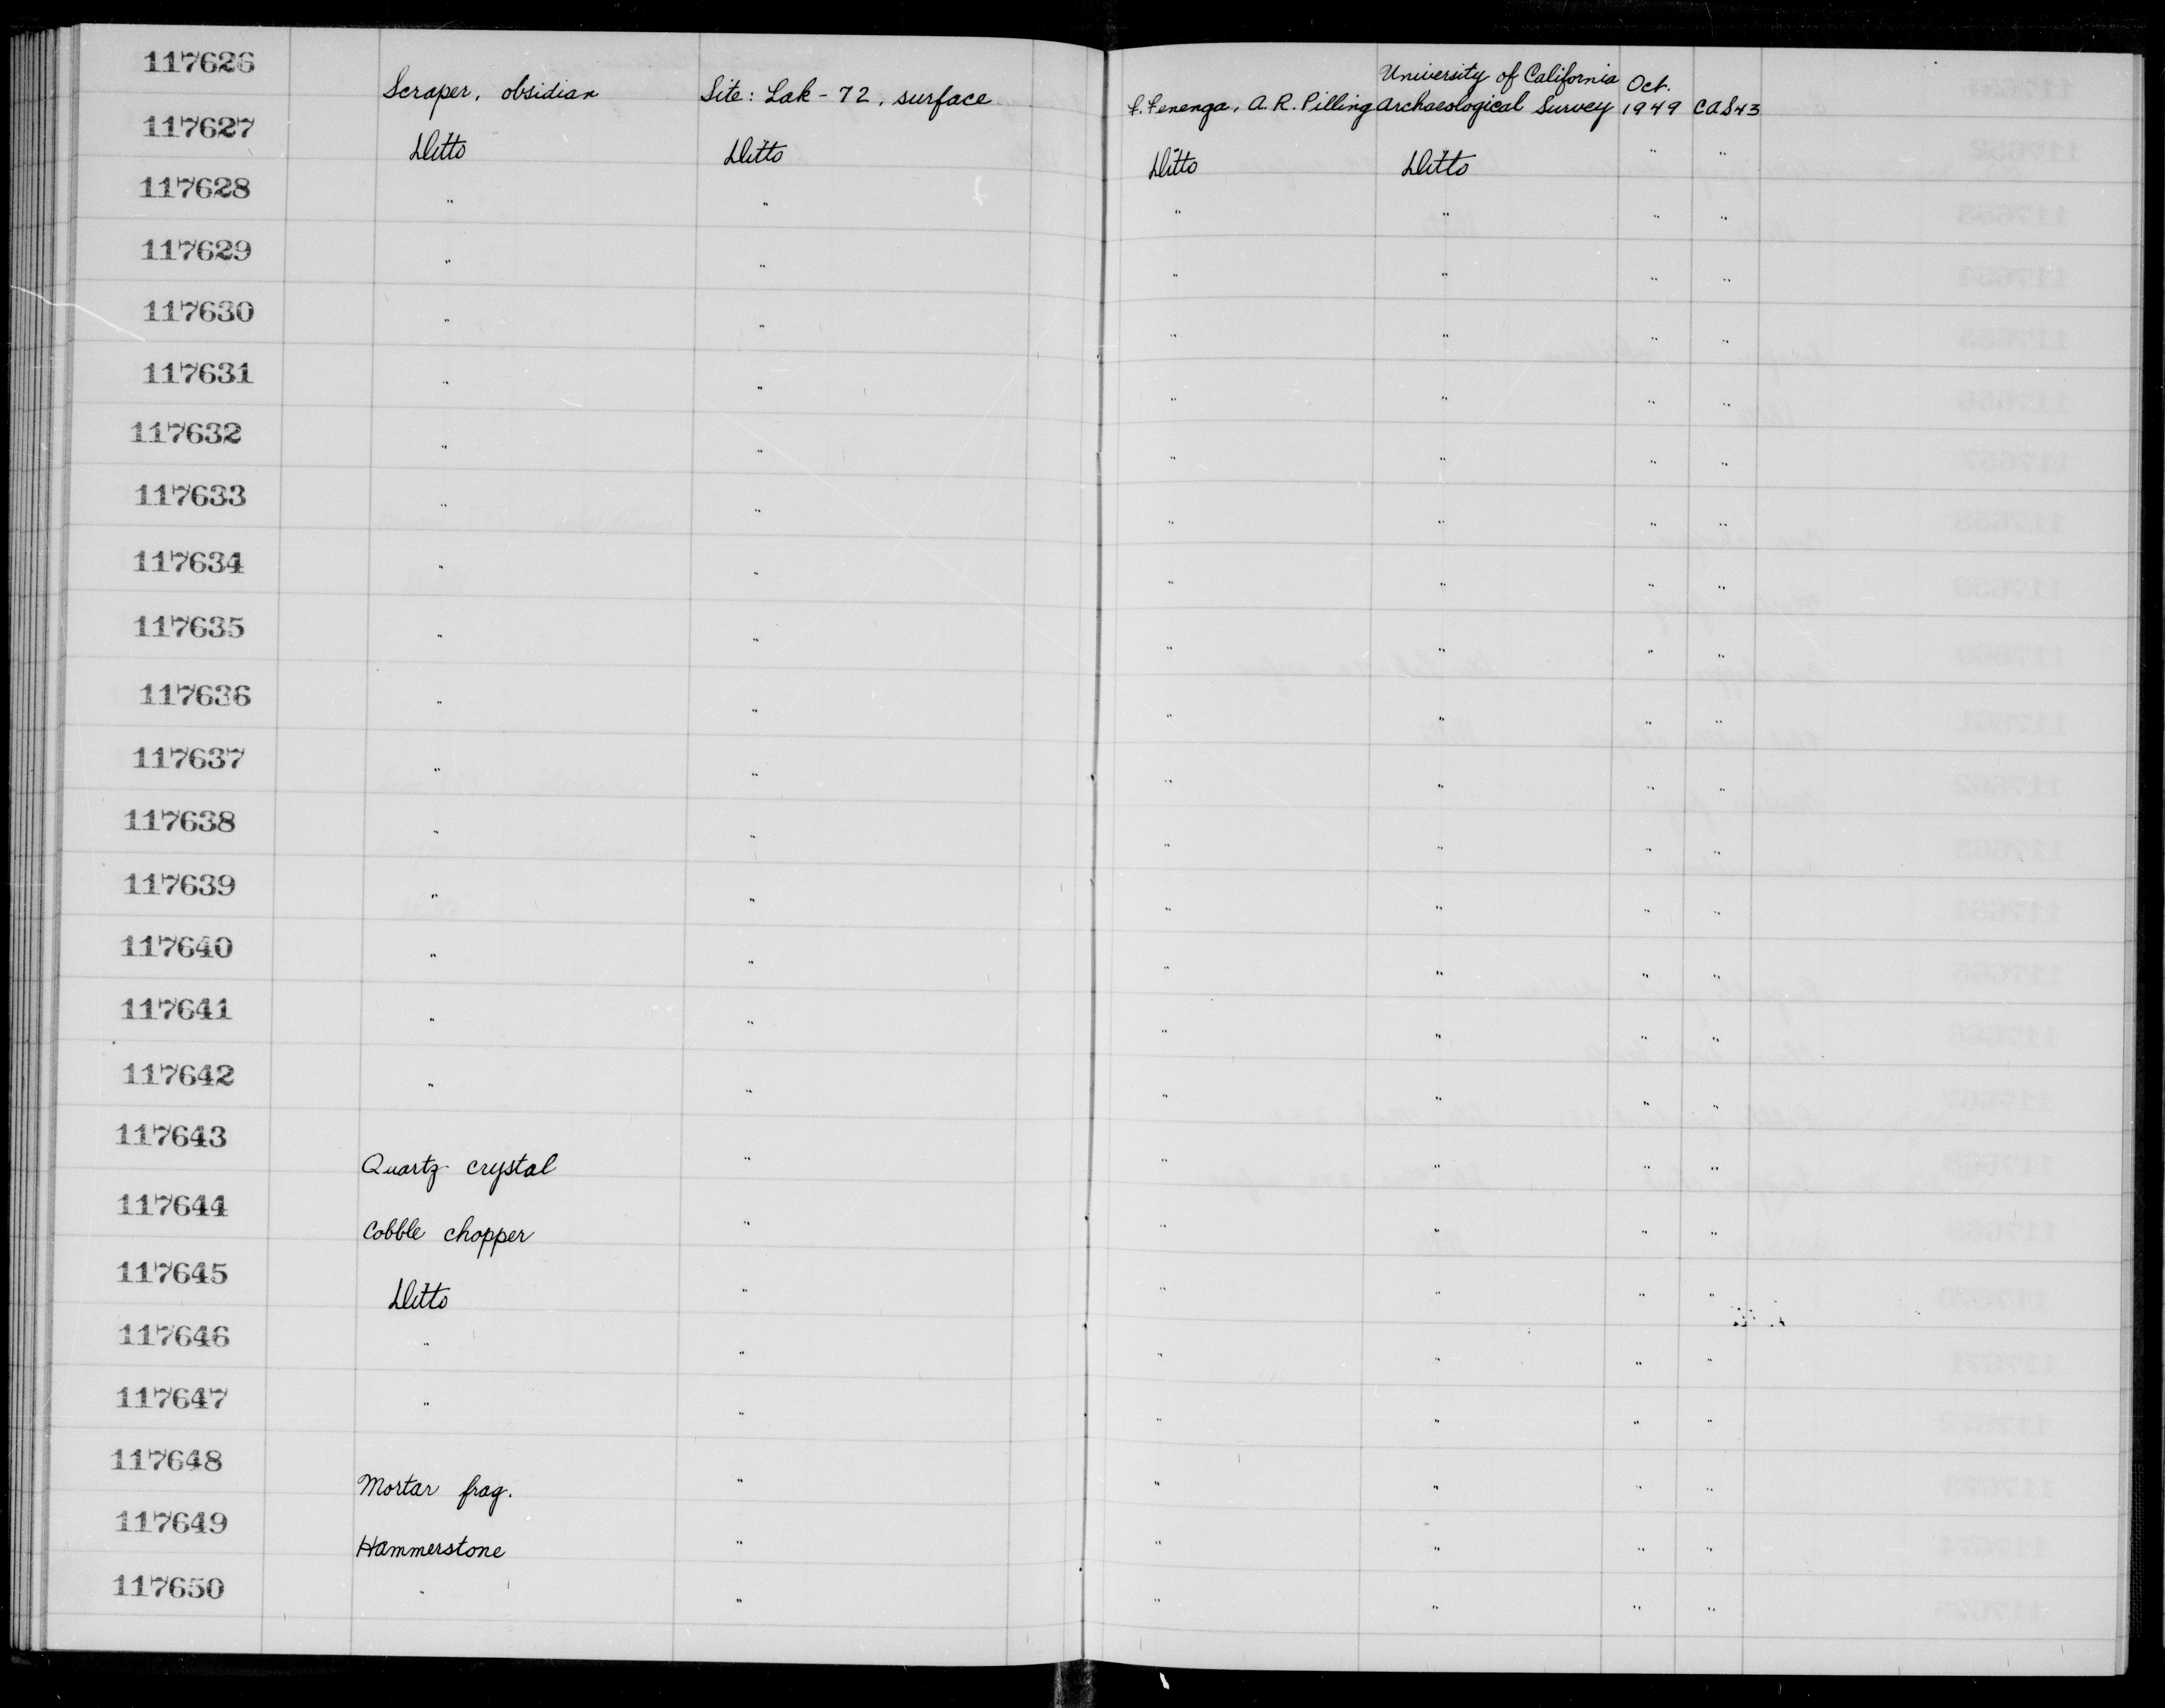 117626 Scraper, obsidian Site: Lak-72, surface F. Fenenga, A. R. Pilling University of California Archaeological Survey Oct. 1949 CAS43
117627 Ditto Ditto Ditto Ditto " "
117628 " " " " " "
117629 " " " " " "
117630 " " " " " "
117631 " " " " " "
117632 " " " " " "
117633 " " " " " "
117634 " " " " " "
117635 " " " " " "
117636 " " " " " "
117637 " " " " " "
117638 " " " " " "
117639 " " " " " "
117640 " " " " " "
117641 " " " " " "
117642 " " " " " "
117643 Quartz crystal " " " " "
117644 Cobble chopper " " " " "
117645 Ditto " " " " "
117646 " " " " " "
117647 " " " " " "
117648 Mortar frag. " " " " "
117649 Hammerstone " " " " "
117650 " " " " " "